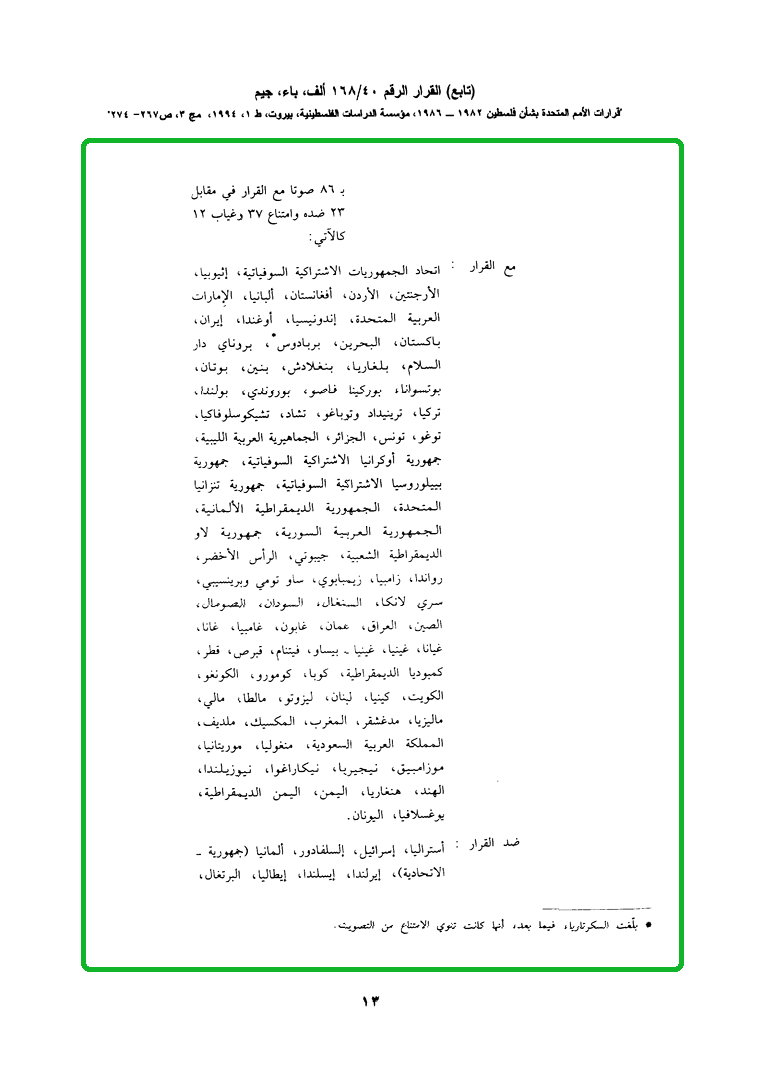 (تابع) القرار الرقم ١٦٨/٤٠ ألف، باء، جيم
"قرارات الأمم المتحدة بشأن فلسطين ١٩٨٢ ــ ١٩٨٦، مؤسسة الدراسات الفلسطينية، بيروت، ط ١، ١٩٩٤، مج ٣، ص٢٦٧- ٢٧٤"
بـ ٨٦ صوتا مع القرار في مقابل
٢٣ ضده وامتناع ٣٧ وغياب ١٢
كالآتي:
مع القرار : اتحاد الجمهوريات الاشتراكية السوفياتية، إثيوبيا،
الأرجنتين، الأردن، أفغانستان، ألبانيا، الإمارات
العربية المتحدة، إندونيسيا، أوغندا، إيران،
باكستان، البحرين، بربادوس*، بروناي دار
السلام، بلغاريا، بنغلادش، بنين، بوتان،
بوتسوانا، بوركينا فاصو، بوروندي، بولندا،
تركيا، ترينيداد وتوباغو، تشاد، تشيكوسلوفاكيا،
توغو، تونس، الجزائر، الجماهيرية العربية الليبية،
جمهورية أوكرانيا الاشتراكية السوفياتية، جمهورية
بييلوروسيا الاشتراكية السوفياتية، جمهورية تنزانيا
المتحدة، الجمهورية الديمقراطية الألمانية،
الجمهورية العربية السورية، جمهورية لاو
الديمقراطية الشعبية، جيبوتي، الرأس الأخضر،
رواندا، زامبيا، زيمبابوي، ساو تومي وبرينسيبي،
سري لانكا، السنغال، السودان، الصومال،
الصين، العراق، عمان، غابون، غامبيا، غانا،
غيانا، غينيا، غينيا ـ بيساو، فيتنام، قبرص، قطر،
كمبوديا الديمقراطية، كوبا، كومورو، الكونغو،
الكويت، كينيا، لبنان، ليزوتو، مالطا، مالي،
ماليزيا، مدغشقر، المغرب، المكسيك، ملديف،
المملكة العربية السعودية، منغوليا، موريتانيا،
موزامبيق، نيجيريا، نيكاراغوا، نيوزيلندا،
الهند، هنغاريا، اليمن، اليمن الديمقراطية،
يوغسلافيا، اليونان.
ضد القرار : أستراليا، إسرائيل، إلسلفادور، ألمانيا (جمهورية ـ
الاتحادية)، إيرلندا، إيسلندا، إيطاليا، البرتغال،
* بلّغت السكرتارياء فيما بعد، أنها كانت تنوي الامتناع من التصويت.
١٣